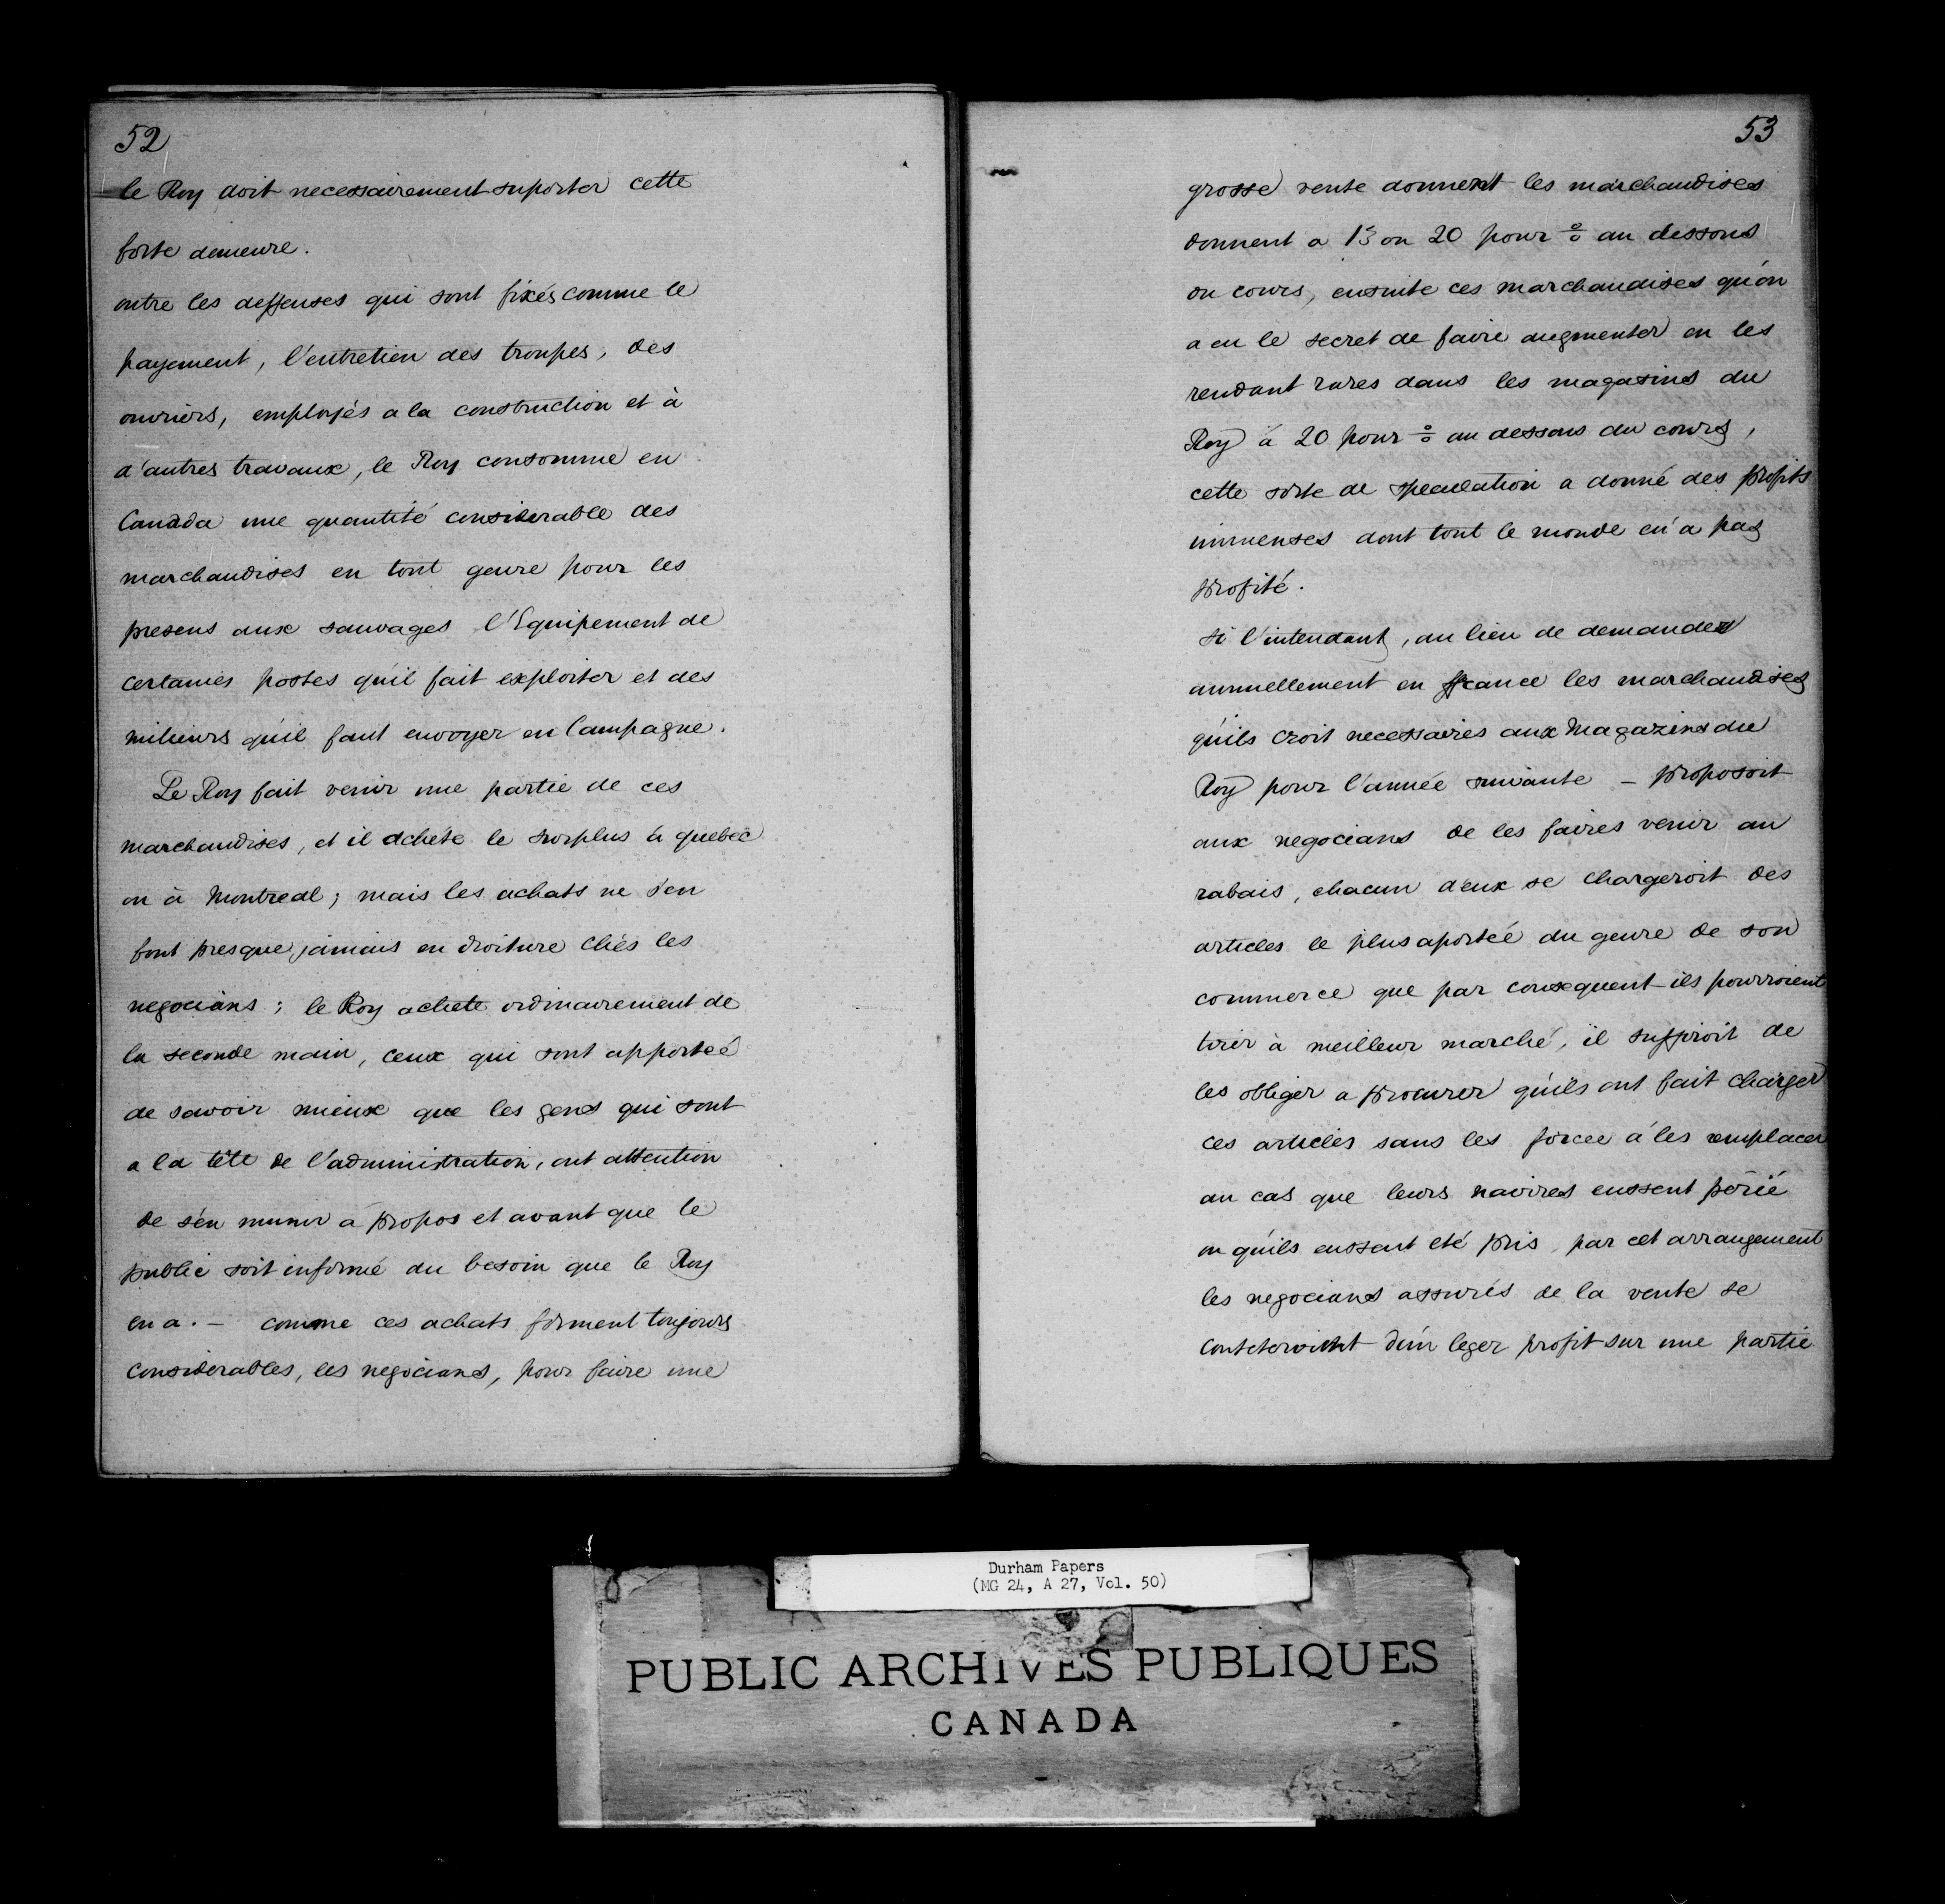 52
le Roy doit necessairement suporter cette
forte demeure.
outre les deffenses qui sont fixés comme le
payement, l'entretien des troupes, des
ouvriers, employés a la construction et à
d'autres travaux, le Roy consomme en
Canada une quantité considerable des
marchandises en tout genre pour les
presens aux sauvages l'Equipement de
certaines postes qu'il fait exploiter et des
miliciens qu'il faut envoyer en Campagne.
Le Roy fait venir une partie de ces
marchandises, et il achéte le surplus à quebec
ou à Montreal; mais les achats ne s'en
font presque jamais en droiture chés les
negocians; le Roy achete ordinairement de
la seconde main, ceux qui sont apporteé
de savoir mieux que les gens qui sont
a la tête de l'administration, ont attention
de s'en munir a propos et avant que le
public soit informé du besoin que le Roy
en a. – comme ces achats forment toujours
considerables, les negocians, pour faire une
53
grosse vente donnent les marchandises
donnent a 15 ou 20 pour % au dessous
du cours, ensuite ces marchandises qu'on
a eu le secret de faire augmenter en les
rendant rares dans les magasins du
Roy à 20 pour % au dessous du cours,
cette sorte de speculation a donné des profits
immenses dont tout le monde en a pas
profité.
Si l'intendant, au lieu de demander
annuellement en france les marchandises
qu'ils croit necessaires aux Magazins du
Roy pour l'année suivante – proposoit
aux negocians de les faires venir au
rabais, chacun d'eux se chargeroit des
articles le plus aporteé du genre de son
commerce que par consequent ils pourroient
tirer à meilleur marché, il suffiroit de
les obliger a procurer qu'ils ont fait charger
ces articles sans les forcee à les remplacer
au cas que leurs navires eussent périé
ou qu'ils eussent eté pris, par cet arrangement
les negocians assurés de la vente se
d'un leger profit sur une partie
Durham Papers
(MG 24, A 27, Vol. 50)
PUBLIC ARCHIVES PUBLIQUES
CANADA